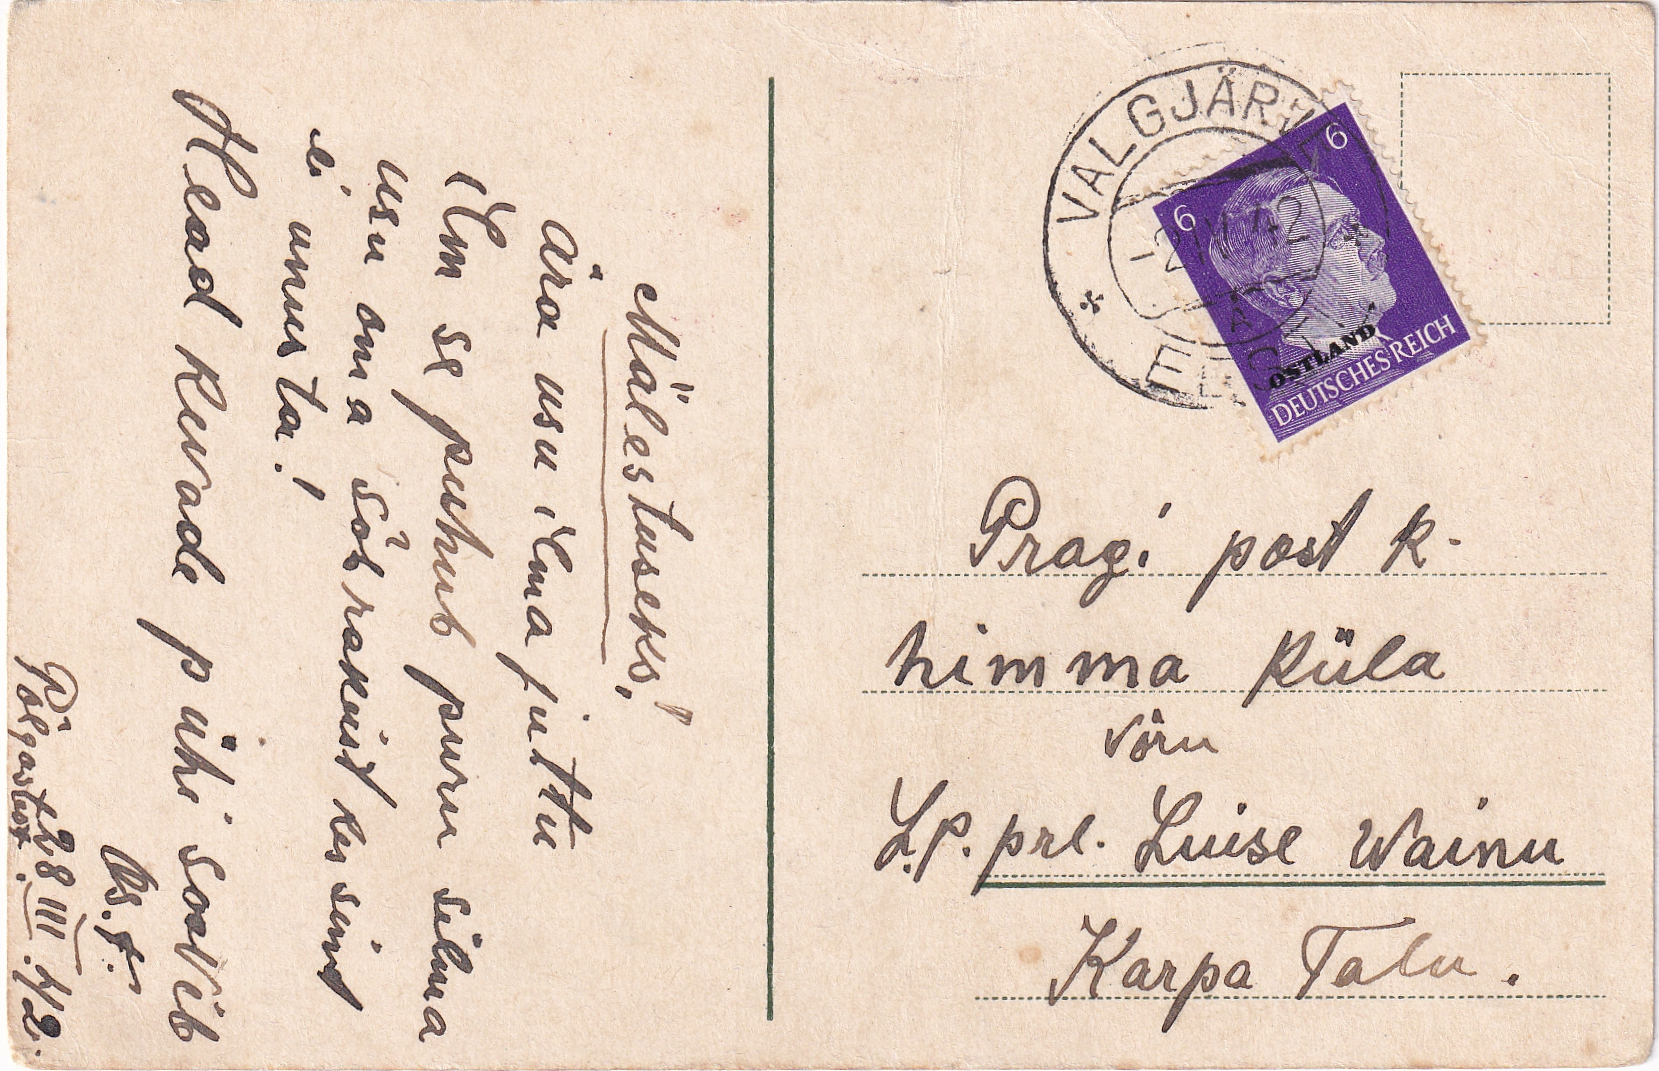 Mälestuseks!
Ära usu ilma juttu
Ilm se puhub puru silma
usu oma sõbrakest kes sind
ei unusta!
Head kevade pühi soovib
Põlgastest. 28 III 42.
VALGJÄRVE
EESTI
A
6
6
OSTLAND
DEUTSCHES REICH
Pragi post k.
himma küla
Võru
L.P. prl. Luise Wainu
Karpa Talu.